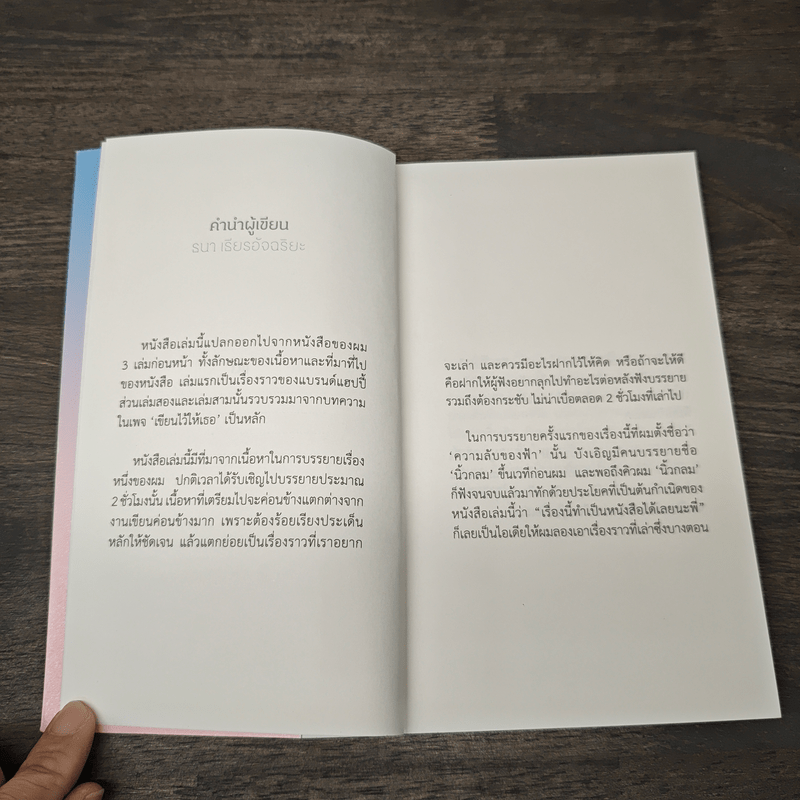 คำนำผู้เขียน
ธนา เธียรอัจฉริยะ
หนังสือเล่มนี้แปลกออกไปจากหนังสือของผม
3 เล่มก่อนหน้า ทั้งลักษณะของเนื้อหาและที่มาที่ไป
ของหนังสือ เล่มแรกเป็นเรื่องราวของแบรนด์แฮปปี้
ส่วนเล่มสองและเล่มสามนั้นรวบรวมมาจากบทความ
ในเพจ ‘เขียนไว้ให้เธอ’ เป็นหลัก
หนังสือเล่มนี้มีที่มาจากเนื้อหาในการบรรยายเรื่อง
หนึ่งของผม ปกติเวลาได้รับเชิญไปบรรยายประมาณ
2 ชั่วโมงนั้น เนื้อหาที่เตรียมไปจะค่อนข้างแตกต่างจาก
งานเขียนค่อนข้างมาก เพราะต้องร้อยเรียงประเด็น
หลักให้ชัดเจน แล้วแตกย่อยเป็นเรื่องราวที่เราอยาก
จะเล่า และควรมีอะไรฝากไว้ให้คิด หรือถ้าจะให้ดี
คือฝากให้ผู้ฟังอยากลุกไปทำอะไรต่อหลังฟังบรรยาย
รวมถึงต้องกระชับ ไม่น่าเบื่อตลอด 2 ชั่วโมงที่เล่าไป
ในการบรรยายครั้งแรกของเรื่องนี้ที่ผมตั้งชื่อว่า
‘ความลับของฟ้า’ นั้น บังเอิญมีคนบรรยายชื่อ
‘นิ้วกลม’ ขึ้นเวทีก่อนผม และพอถึงคิวผม ‘นิ้วกลม’
ก็ฟังจนจบแล้วมาทักด้วยประโยคที่เป็นต้นกำเนิดของ
หนังสือเล่มนี้ว่า “เรื่องนี้ทำเป็นหนังสือได้เลยนะพี่”
ก็เลยเป็นไอเดียให้ผมลองเอาเรื่องราวที่เล่าซึ่งบางตอน